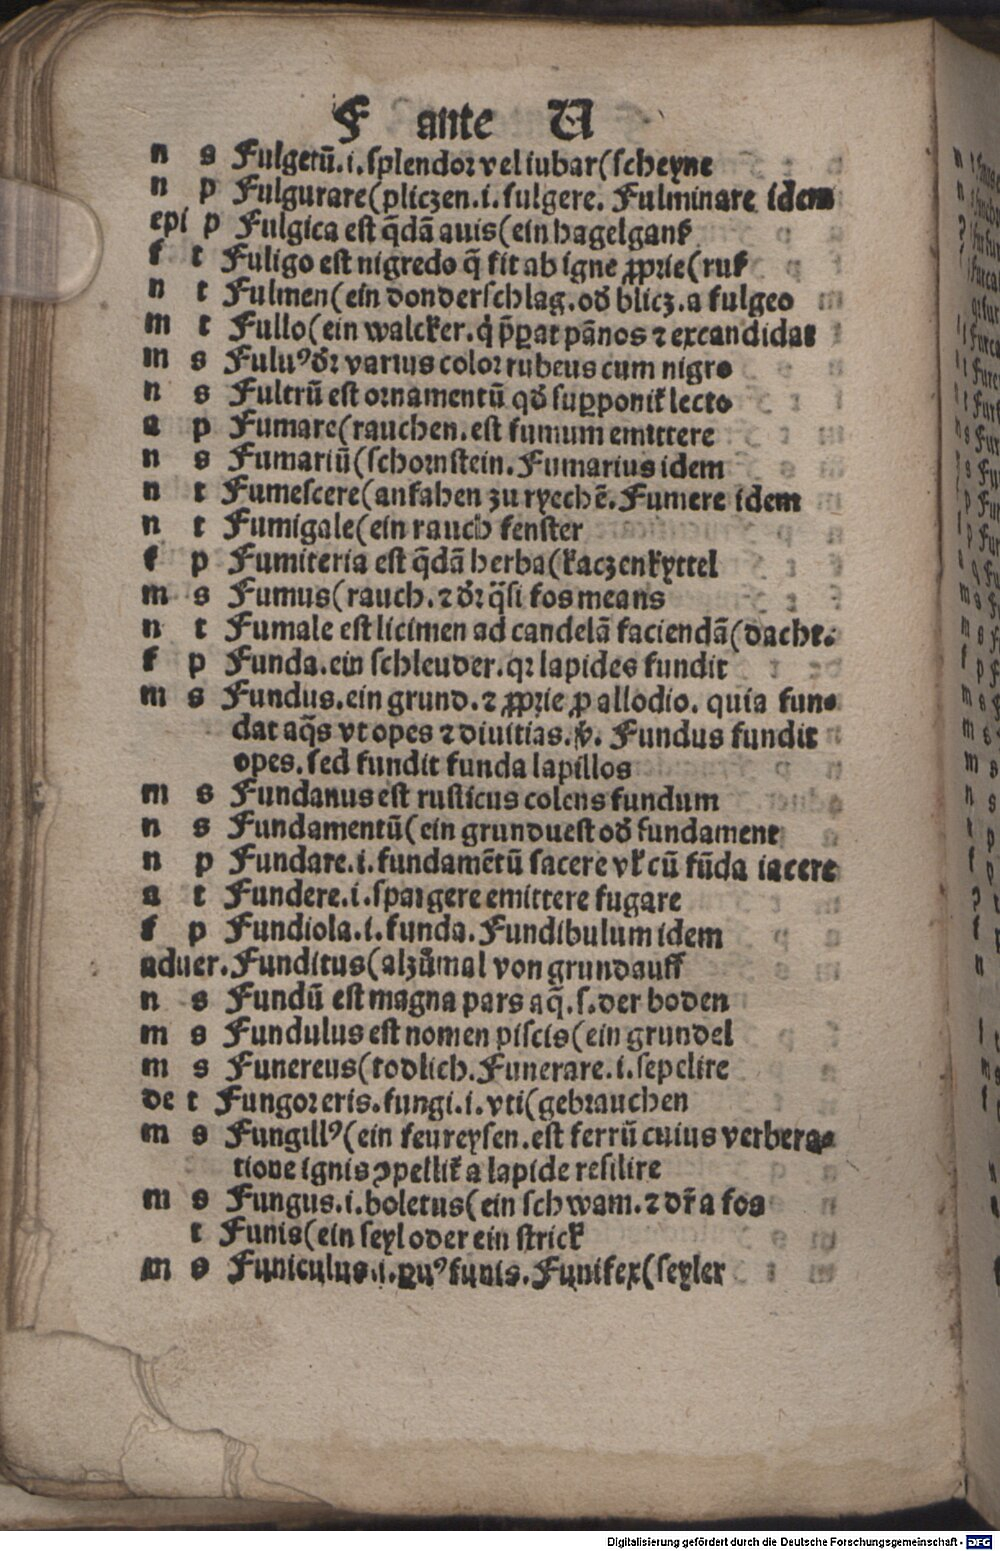 F ante U
n s Fulgetū.i.ſplendor vel iubar(ſcheyne
n p Fulgurare(pliczen.i.fulgere. Fulminare idem
epi p Fulgica eſt q̄dā auis(ein hagelganß
f t Fuligo eſt nigredo q̄ fit ab igne ꝓprie(ruß
n t Fulmen(ein donderſchlag.od̕ blicz.a fulgeo
m t Fullo(ein walcker.q̇ p̄ꝑat pānos ⁊ excandidat
m s Fuluꝰ dr̄ varius color rubeus cum nigro
n s Fultrū eſt ornamentū qd̕ ſupponit̕ lecto
a p Fumare(rauchen.eſt fumum emittere
n s Fumariū(ſchornſtein.Fumarius idem
n t Fumeſcere(anfahen zu ryechē.Fumere idem
n t Fumigale(ein rauch fenſter
f p Fumiteria eſt q̄dā herba(kaczenkyttel
m s Fumus(rauch.⁊ dr̄ q̄ſi fos means
n t Fumale eſt licimen ad candelā faciendā(dacht.
f p Funda.ein ſchleuder.qꝛ lapides fundit
m s Fundus.ein grund.⁊ ꝓprie ꝓ allodio. quia fun⸗
dat aq̄s vt opes ⁊ diuitias.ꝟ. Fundus fundit
opes.ſed fundit funda lapillos
m s Fundanus eſt ruſticus colens fundum
n s Fundamentū(ein grundueſt od̕ fundament
n p Fundare.i.fundamētū facere vl̕ cū fūda iacere
a t Fundere.i.ſpargere emittere fugare
f p Fundiola.i.funda.Fundibulum idem
aduer.Funditus(alzůmal von grundauff
n s Fundū eſt magna pars aq̄.ſ.der boden
m s Fundulus eſt nomen piſcis(ein grundel
m s Funereus(todlich.Funerare.i.ſepelire
de t Fungor eris.fungi.i.vti(gebrauchen
m s Fungillꝰ(ein feureyſen.eſt ferrū cuius verbera⸗
tione ignis ꝯpellit̕ a lapide reſilire
m s Fungus.i.boletus(ein ſchwam.⁊ dr̄ a fos
t Funis(ein ſeyl oder ein ſtrick
m s Funiculus.i.ꝑuꝰ funis.Funifex(ſeyler
Digitalisierung gefördert durch die Deutsche Forschungsgemeinschaft - DFG